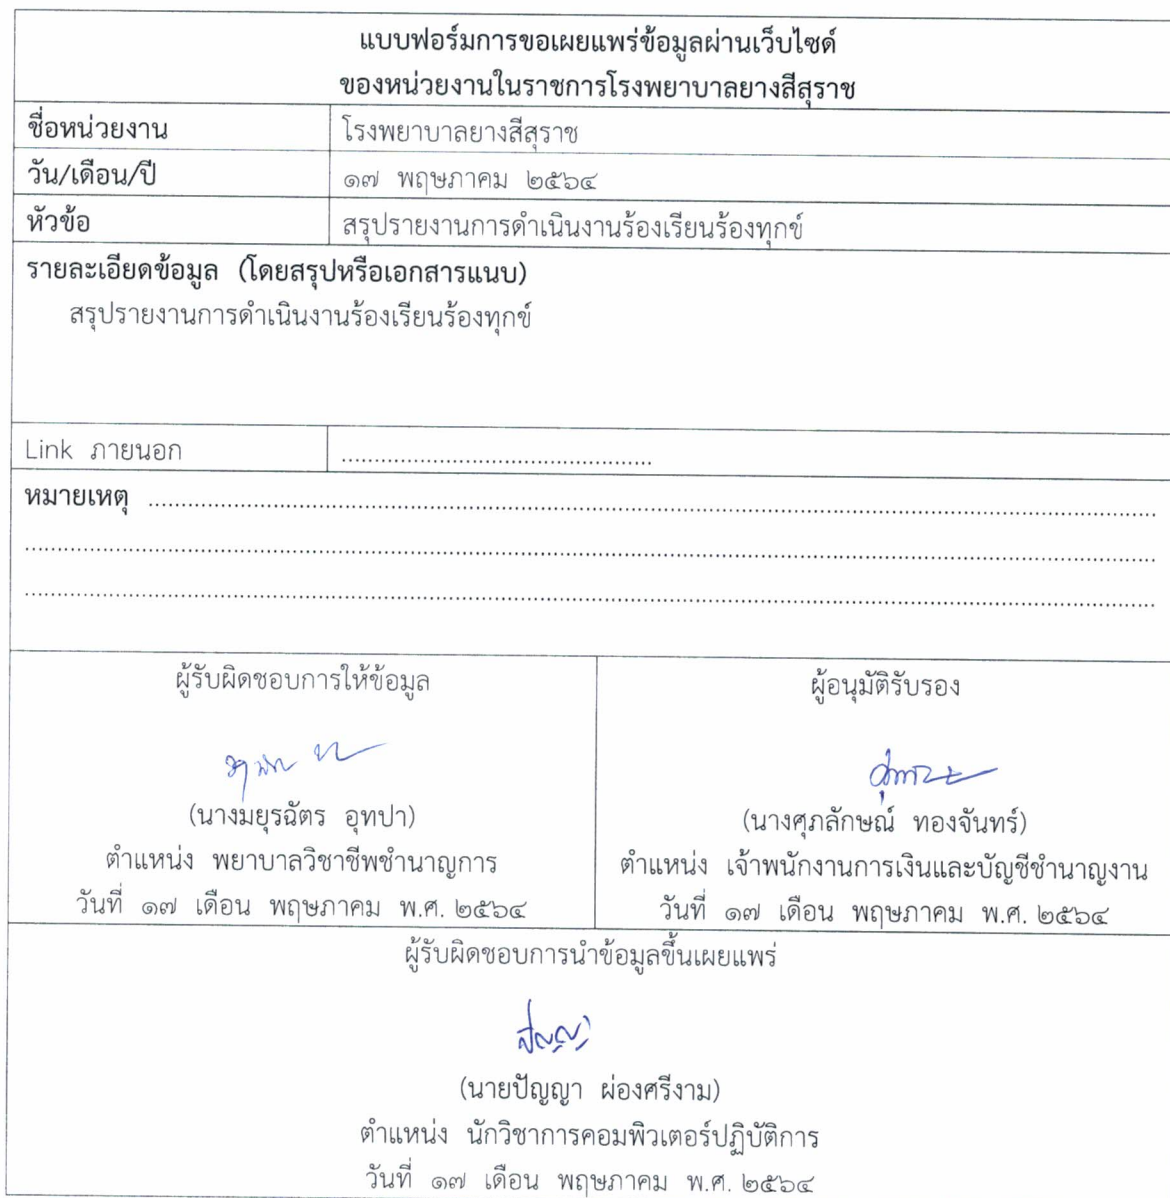 แบบฟอร์มการขอเผยแพร่ข้อมูลผ่านเว็บไซต์
ของหน่วยงานในราชการโรงพยาบาลยางสีสุราช
ชื่อหน่วยงาน โรงพยาบาลยางสีสุราช
วัน/เดือน/ปี ๑๗ พฤษภาคม ๒๕๖๔
หัวข้อ สรุปรายงานการดำเนินงานร้องเรียนร้องทุกข์
รายละเอียดข้อมูล (โดยสรุปหรือเอกสารแนบ)
สรุปรายงานการดำเนินงานร้องเรียนร้องทุกข์
Link ภายนอก ................................................
หมายเหตุ ................................................................................
................................................................................
................................................................................
ผู้รับผิดชอบการให้ข้อมูล
(นางมยุรฉัตร อุทปา)
ตำแหน่ง พยาบาลวิชาชีพชำนาญการ
วันที่ ๑๗ เดือน พฤษภาคม พ.ศ. ๒๕๖๔
ผู้อนุมัติรับรอง
(นางศุภลักษณ์ ทองจันทร์)
ตำแหน่ง เจ้าพนักงานการเงินและบัญชีชำนาญงาน
วันที่ ๑๗ เดือน พฤษภาคม พ.ศ. ๒๕๖๔
ผู้รับผิดชอบการนำข้อมูลขึ้นเผยแพร่
ปัญญา
(นายปัญญา ผ่องศรีงาม)
ตำแหน่ง นักวิชาการคอมพิวเตอร์ปฏิบัติการ
วันที่ ๑๗ เดือน พฤษภาคม พ.ศ. ๒๕๖๔